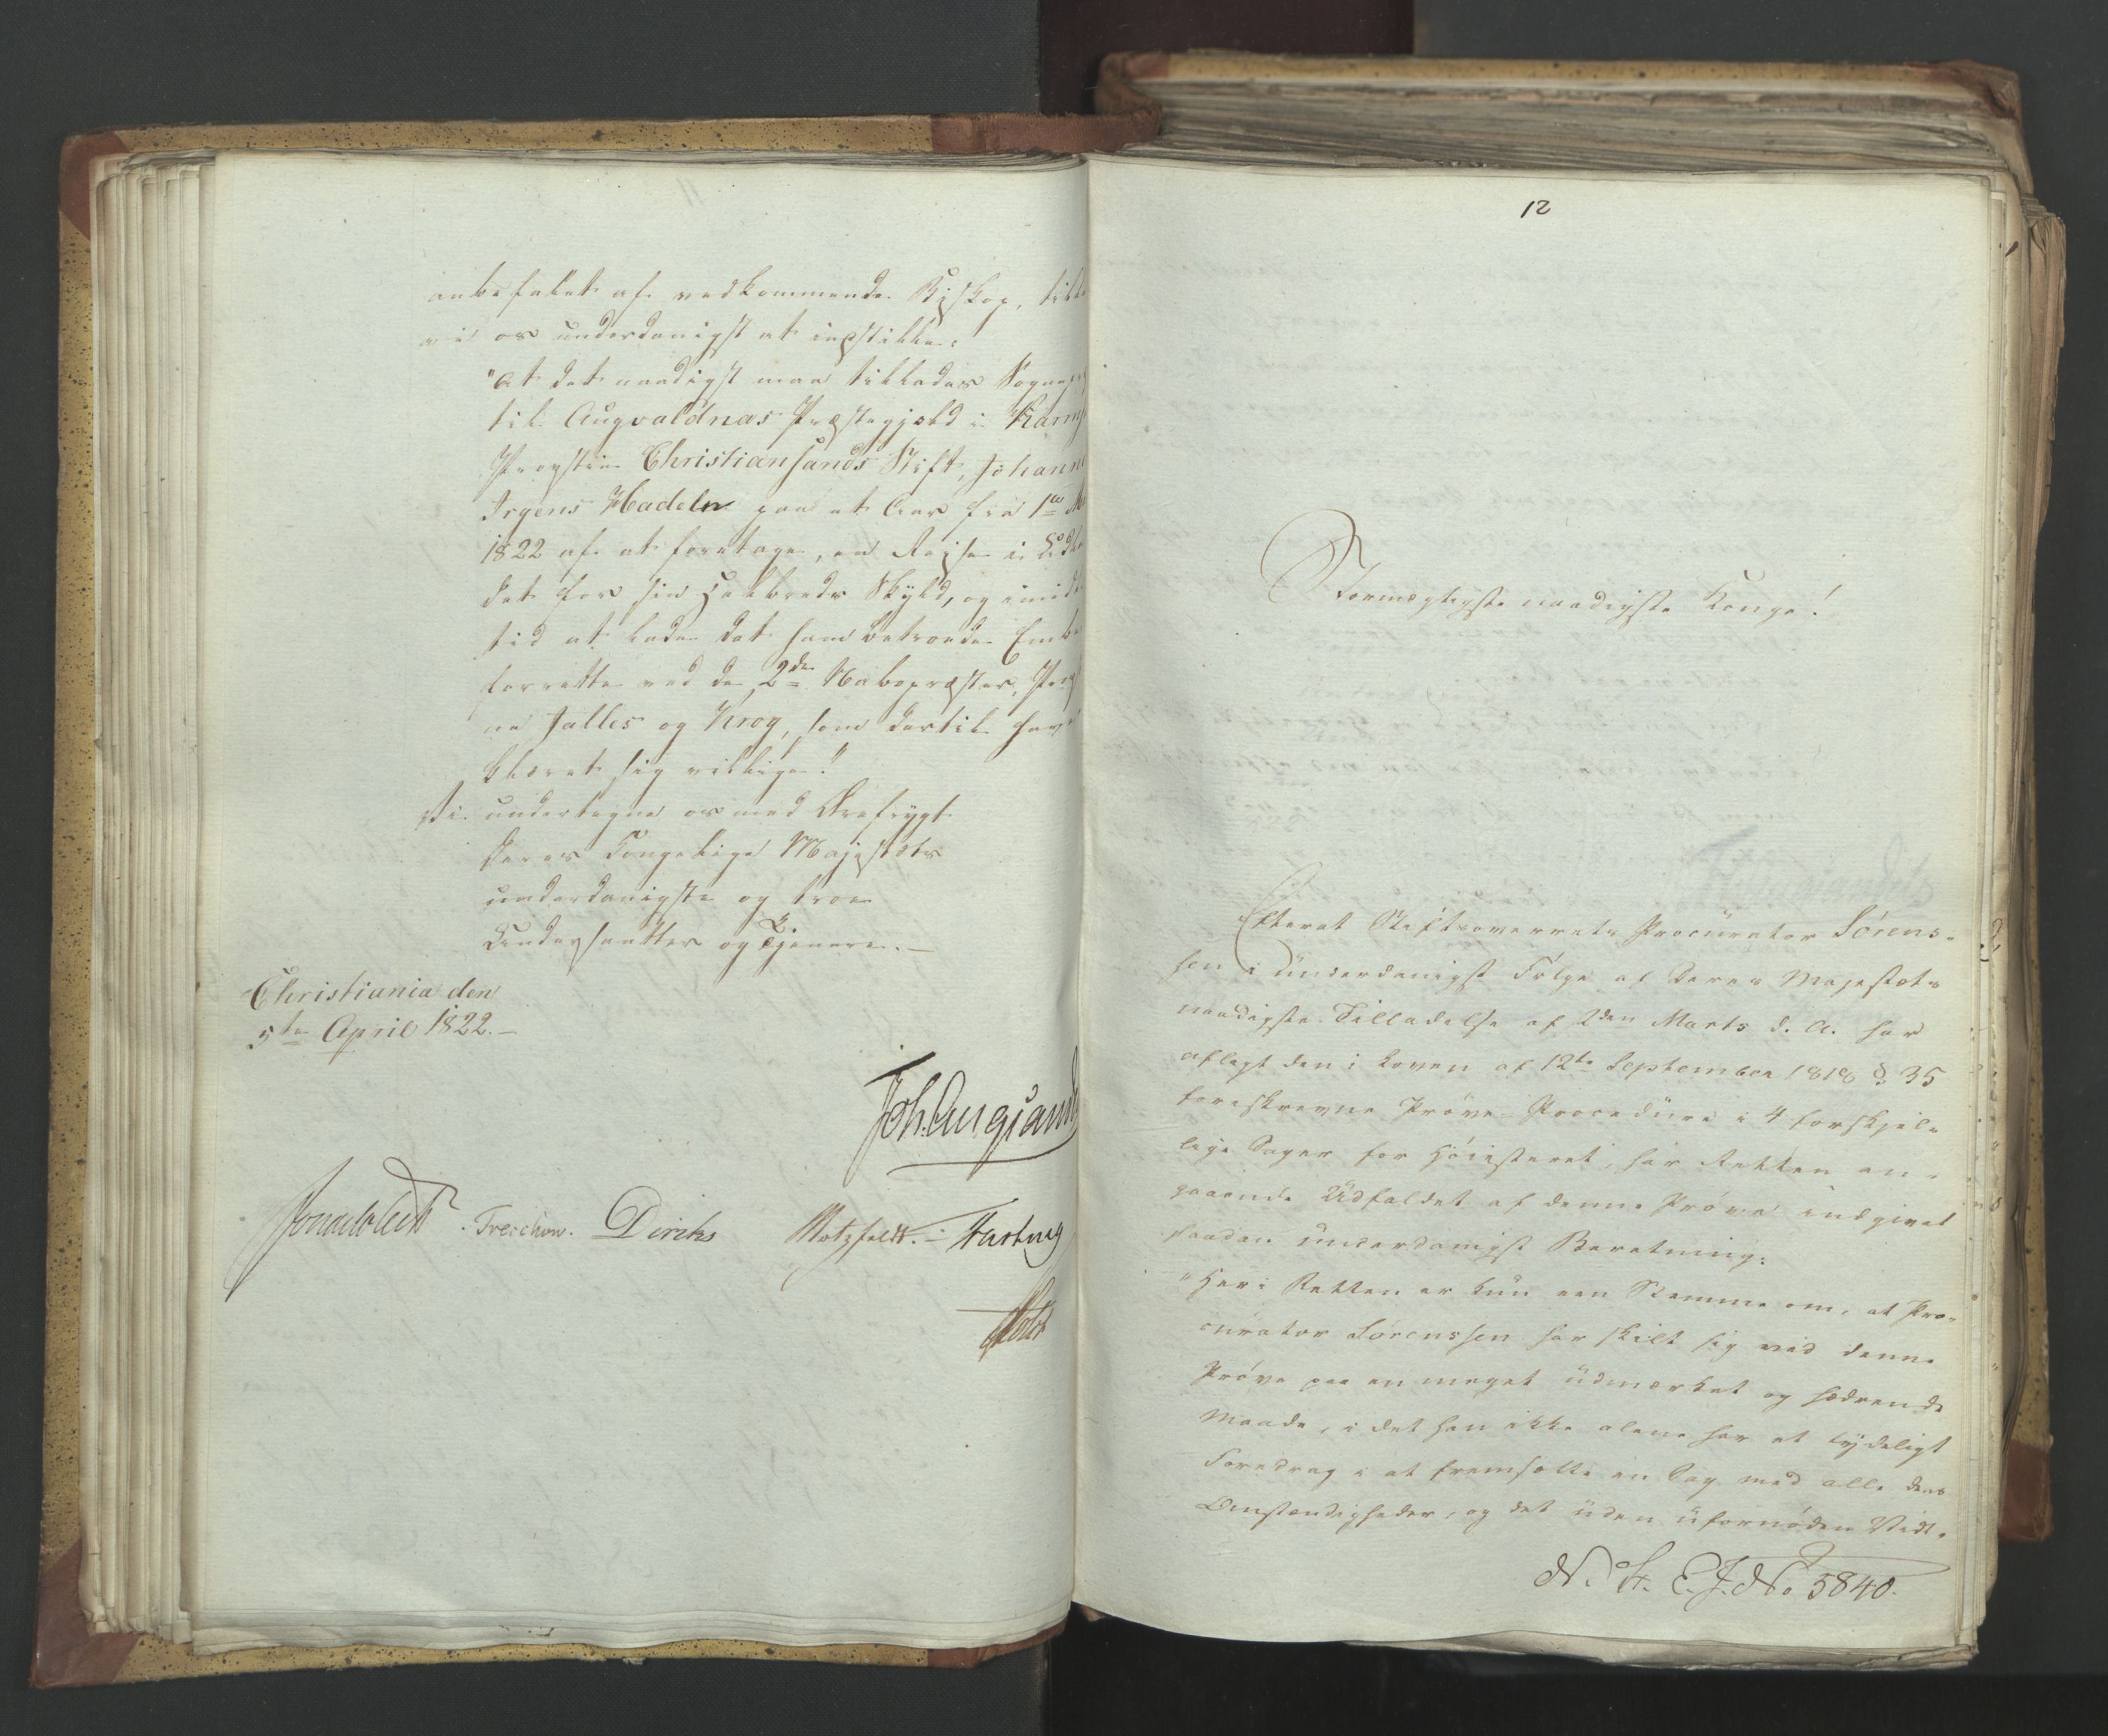 anbefalet af vedkommende Biskop, till
vi os underdanigst at indstille:
"At det naadigst maa tillades Sognepr
til Augvaldnæs Præstegjeld i Karms
Provstie Christiansands Stift, Johann
Irgens Hadeln paa et Aar fra 1ste M
1822 af at foretage, en Reise i Udla
det for sin Helbreds Skyld, og imid
tid at lade det ham betroede Embe
forrette ved de 2de Nabopræster,
ne Jalles og Krog, som dertil have
klæret sig villige."
Vi undertegne os med Ærefrygt
Deres Kongelige Majestæts
underdanigste og troe
Undersaatter og Tjenere.—
Christiania den
5te April 1822.—
Treschow. Diriks Motzfeldt.
Holst
12
Stormægtigste naadigste Konge!
Efterat Stiftsoverrets Procurator Sörens-
sen i underdanigst Fölge af Deres Majestæts
naadigste Tilladelse af 2den Marts d. A. har
aflagt den i Loven af 12te September 1818 § 35
foreskrevne Pröve-Procedure i 4 forskjel-
lige Sager for Höiesteret, har Retten an-
gaaende Udfaldet af denne Pröve indgivet
saadan underdanigst Beretning:
"Her i Retten er kun een Stemme om, at Pro-
curator Sörenssen har skilt sig ved denne
Pröve paa en meget udmærket og hædrende
Maade, i det han ikke alene har et tydeligt
Foredrag i at fremsætte en Sag med alle dens
Omstændigheder, og det uden ufornöden Vidt-
No 5840.